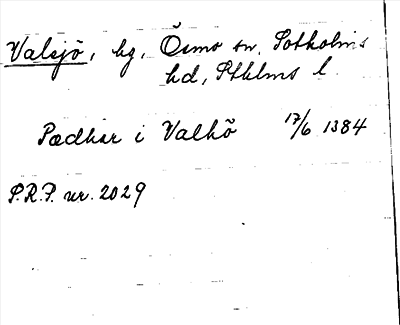 Valsjö, hg, Ösmo sn, Sotholms
hd, Sthlms l.
Pædhar i Valhö 17/6 1384
S.R.P. nr. 2029